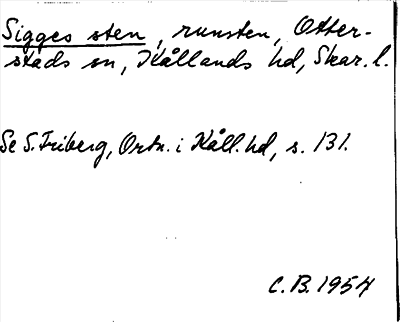 Sigges sten, runsten, Otter-
stads sn, Kållands hd, Skar. l.
Se S. Friberg, Ortn. i Kåll. hd, s. 131.
C. B. 1954